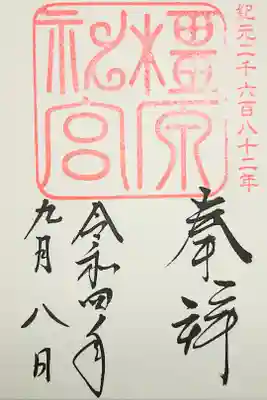 紀元二千六百八十二年
橿原神宮
奉拝
令和四年
九月八日